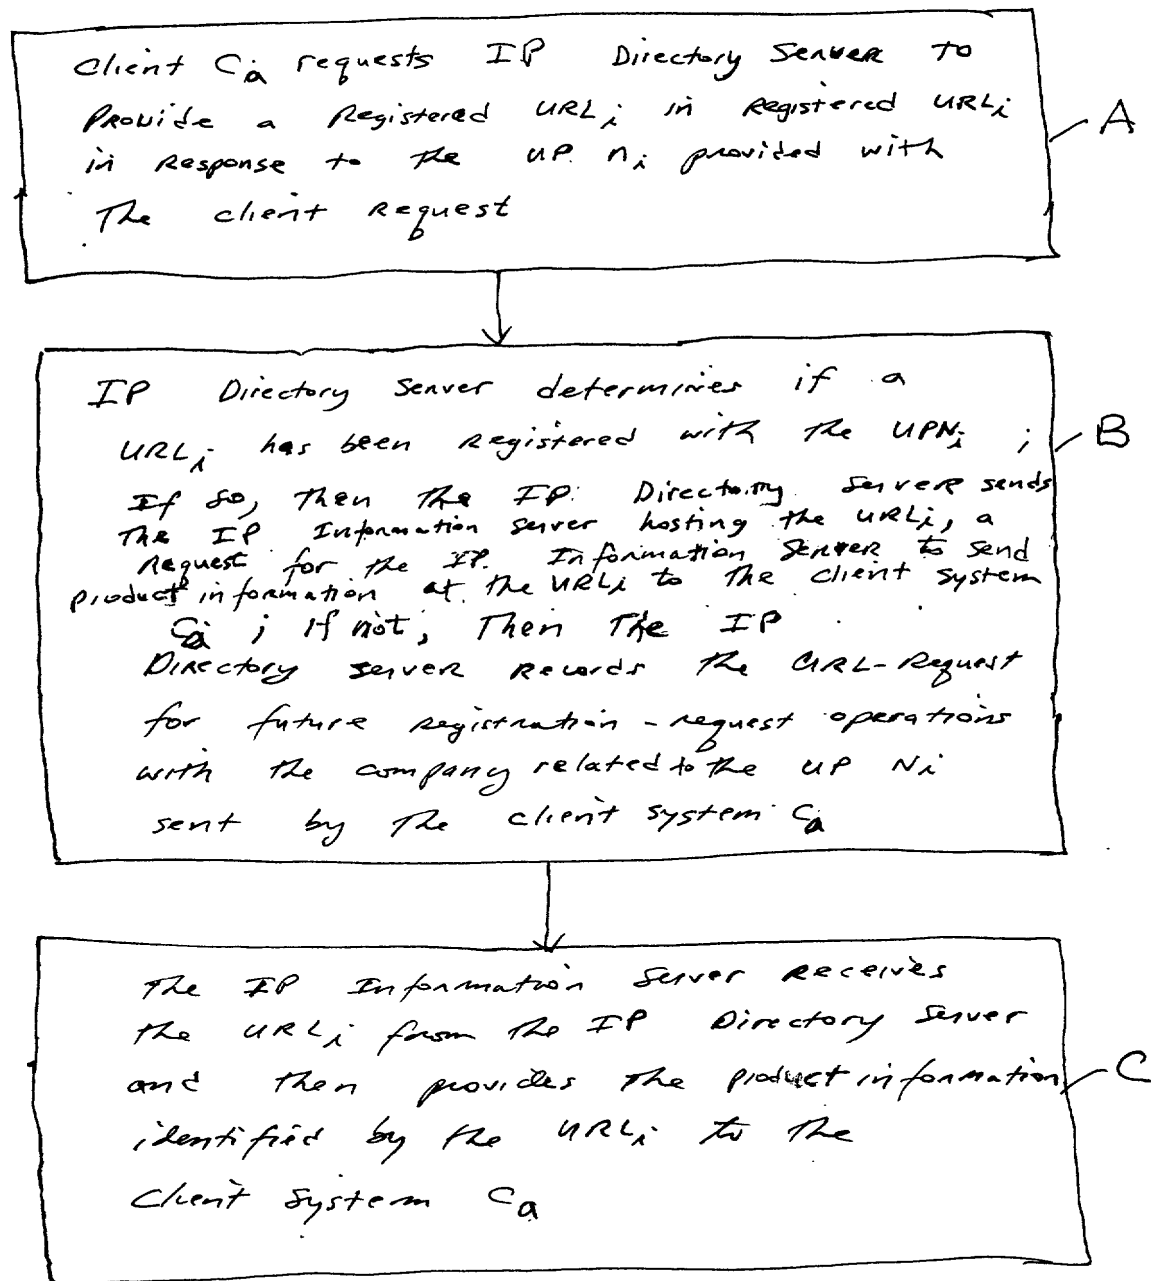 Client Ca requests IP Directory Server to
Provide a Registered URLi in Registered URLi
in Response to the UP ni provided with
The client Request
A
IP Directory Server determines if a
URLi has been Registered with the UPNi ;
If so, then the IP Directory Server sends
The IP Information Server hosting the URLi, a
Request for the IP Information Server to send
product information at the URLi to the client system
Ca ; if not, Then The IP
Directory server Records the URL-Request
for future Registration-request operations
with the company related to the UP Ni
sent by The client system Ca
B
The IP Information Server Receives
the URLi from the IP Directory Server
and then provides the product information
identified by the URLi to the
Client System Ca
C